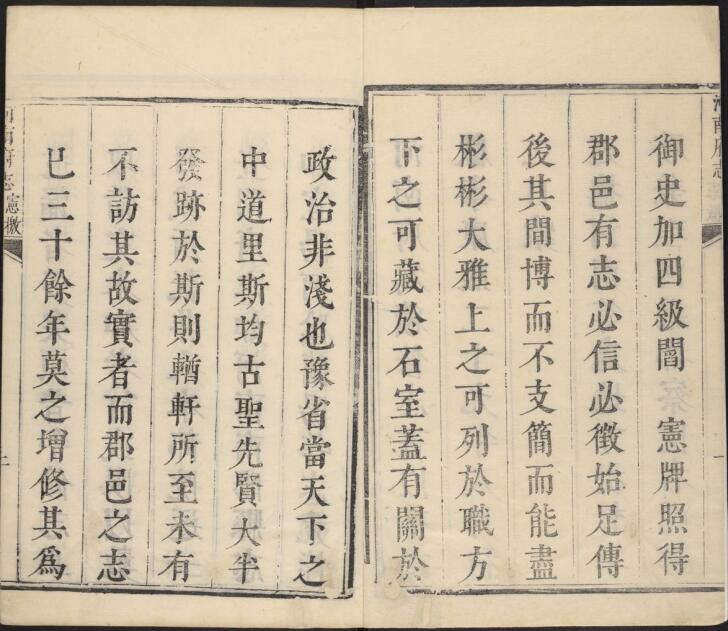 御史加四級閻　憲牌照得
郡邑有志必信必徵始足傳
後其間博而不支簡而能盡
彬彬大雅上之可列於職方
下之可藏於石室蓋有關於
政治非淺也豫省當天下之
中道里斯均古聖先賢大半
發跡於斯則輶軒所至未有
不訪其故實者而郡邑之志
已三十餘年莫之增修其爲
南府志
憲檄